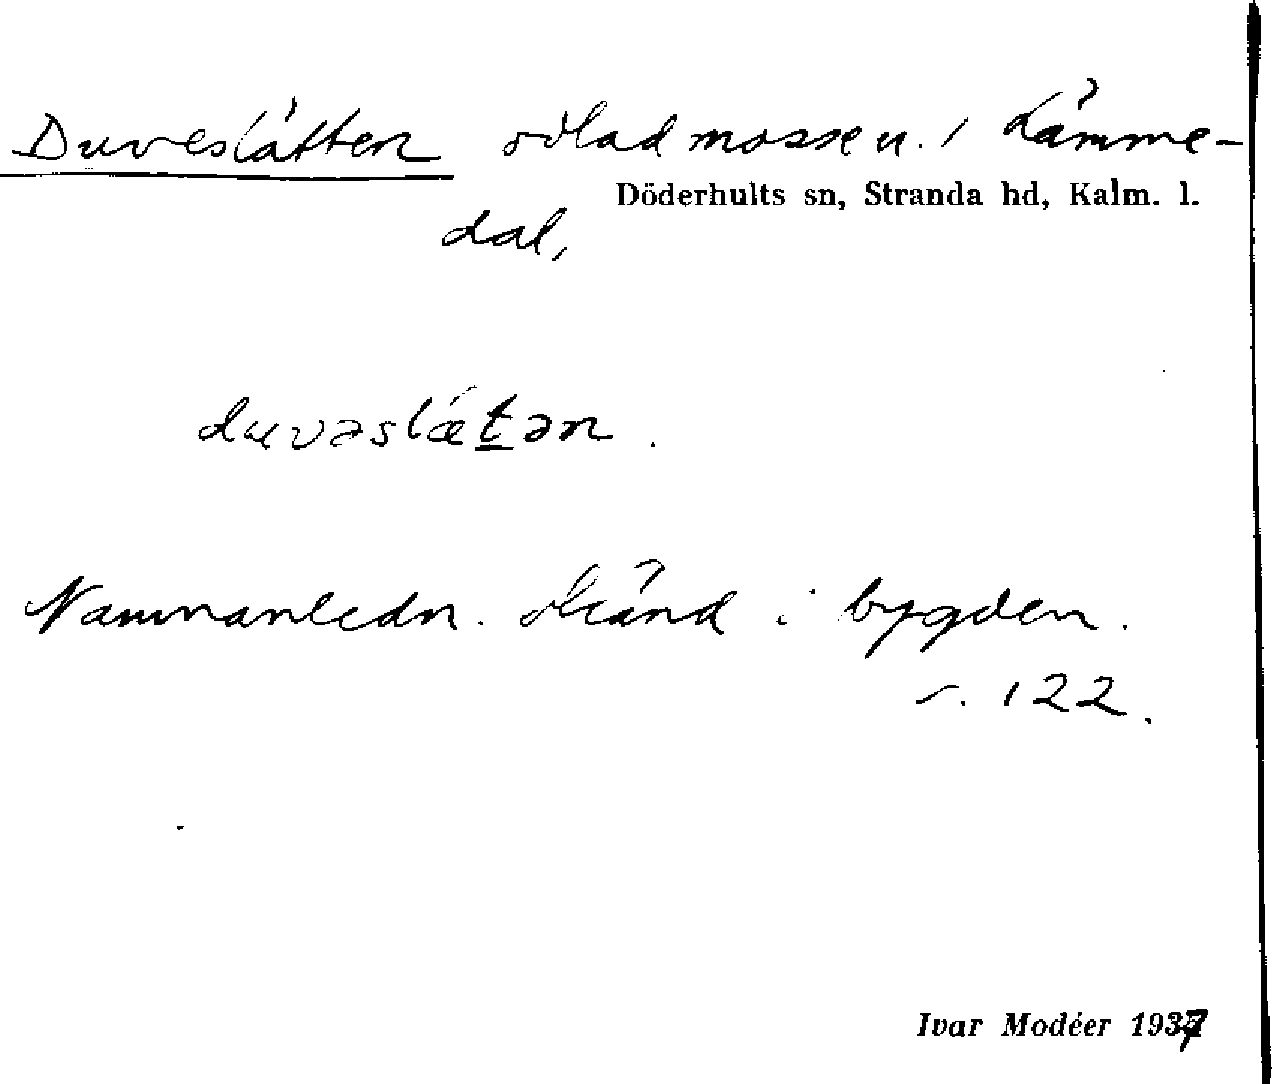 Duveslätten odlad mosse u. Lämme-
Döderhults sn, Stranda hd, Kalm. l.
dal,
duvəslætən.
Namnanledn. okänd i bygden.
s. 122.
Ivar Modéer 1937